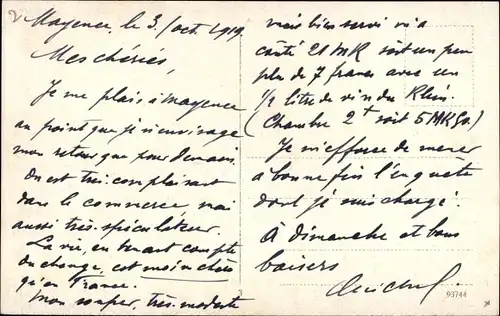 Mayence, le 3/oct. 1919.
Mes chéries,
Je me plais à Mayence
au point que je n'envisage
mon retour que pour demain.
On est très complaisant
dans le commerce, mais
aussi très spéculateur.
La vie, en tenant compte
du change, est moins chère
qu'en France.
Mon souper, très modeste
mais bien servi m'a
coûté 21 MK soit un peu
plus de 7 francs avec un
1/2 litre de vin du Rhin.
(Chambre 2+ soit 5 MK 50.)
Je m'efforce de mener
à bonne fin l'enquête
dont je suis chargé.
À dimanche et bons
baisers
Michel
3
93744